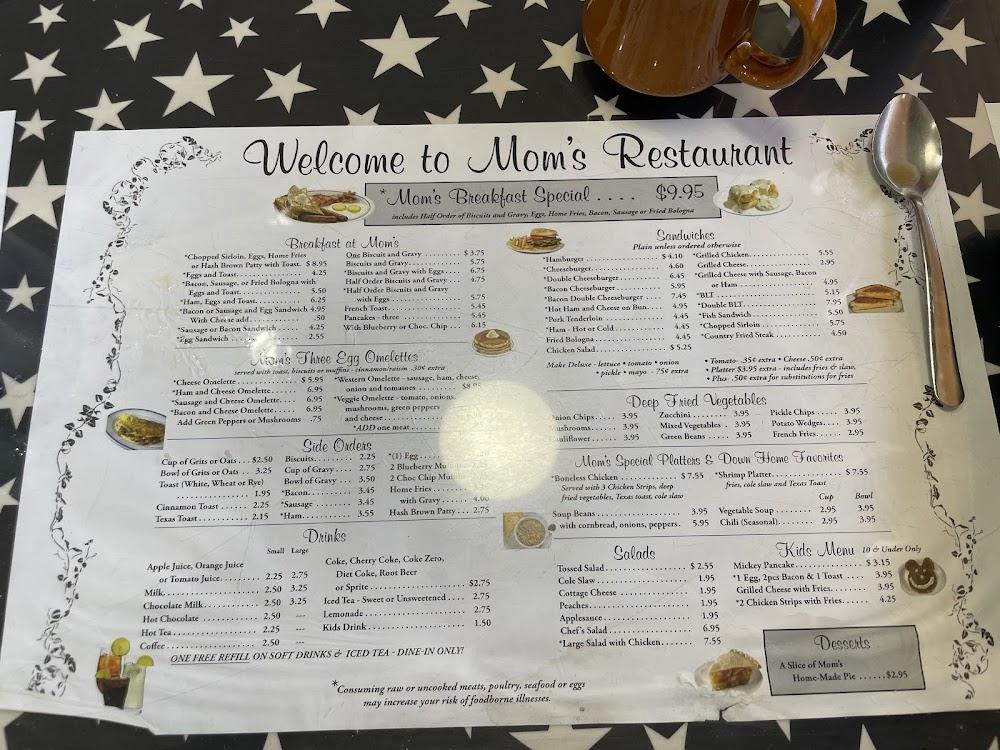 Welcome to Mom's Restaurant
*Mom's Breakfast Special .... $9.95
includes Half Order of Biscuits and Gravy, Eggs, Home Fries, Bacon, Sausage or Fried Bologna
Breakfast at Mom's
*Chopped Sirloin, Eggs, Home Fries
or Hash Brown Patty with Toast. $ 8.95
*Eggs and Toast 4.25
*Bacon, Sausage, or Fried Bologna with
Eggs and Toast 5.50
*Ham, Eggs and Toast 6.25
*Bacon or Sausage and Egg Sandwich 4.95
With Cheese add .50
*Sausage or Bacon Sandwich 4.25
*Egg Sandwich 2.55
One Biscuit and Gravy $ 3.75
Biscuits and Gravy 5.75
*Biscuits and Gravy with Eggs 6.75
Half Order Biscuits and Gravy 4.75
*Half Order Biscuit and Gravy
with Eggs 5.75
French Toast 5.45
Pancakes - three 5.45
With Blueberry or Choc. Chip 6.15
Mom's Three Egg Omelettes
served with toast, biscuits or muffins - cinnamon/raisin .30¢ extra
*Cheese Omelette $ 5.95
*Ham and Cheese Omelette 6.95
*Sausage and Cheese Omelette 6.95
*Bacon and Cheese Omelette 6.95
Add Green Peppers or Mushrooms .75
*Western Omelette - sausage, ham, cheese,
onion and tomatoes
*Veggie Omelette - tomato, onions,
mushrooms, green peppers
and cheese
*ADD one meat
Side Orders
Cup of Grits or Oats $2.50
Bowl of Grits or Oats 3.25
Toast (White, Wheat or Rye)
1.95
Cinnamon Toast 2.25
Texas Toast 2.15
Biscuits 2.25
Cup of Gravy 2.75
Bowl of Gravy 3.50
*Bacon 3.45
*Sausage 3.45
*Ham 3.55
*(1) Egg
2 Blueberry
2 Choc Chip
Home Fries
with Gravy 4.00
Hash Brown Patty 2.75
Drinks
Small Large
Apple Juice, Orange Juice
or Tomato Juice 2.25 2.75
Milk 2.50 3.25
Chocolate Milk 2.50 3.25
Hot Chocolate 2.50 ---
Hot Tea 2.25 ---
Coffee 2.50 ---
Coke, Cherry Coke, Coke Zero,
Diet Coke, Root Beer
or Sprite $2.75
Iced Tea - Sweet or Unsweetened 2.75
Lemonade 2.75
Kids Drink 1.50
ONE FREE REFILL ON SOFT DRINKS & ICED TEA - DINE-IN ONLY!
*Consuming raw or uncooked meats, poultry, seafood or eggs
may increase your risk of foodborne illnesses.
Sandwiches
Plain unless ordered otherwise
*Hamburger $ 4.10
*Cheeseburger 4.60
*Double Cheeseburger 6.45
*Bacon Cheeseburger 5.95
*Bacon Double Cheeseburger 7.45
*Hot Ham and Cheese on Bun 4.95
*Pork Tenderloin 4.45
*Ham - Hot or Cold 4.45
Fried Bologna 4.45
Chicken Salad $ 5.25
*Grilled Chicken 5.55
Grilled Cheese 2.95
*Grilled Cheese with Sausage, Bacon
or Ham 4.95
*BLT 5.15
*Double BLT 7.95
*Fish Sandwich 5.50
*Chopped Sirloin 5.75
*Country Fried Steak 4.50
Make Deluxe - lettuce • tomato • onion
• pickle • mayo - 75¢ extra
• Tomato- .35¢ extra • Cheese .50¢ extra
• Platter $3.95 extra - includes fries & slaw,
• Plus- .50¢ extra for substitutions for fries
Deep Fried Vegetables
Chips 3.95
3.95
3.95
Zucchini 3.95
Mixed Vegetables 3.95
Green Beans 3.95
Pickle Chips 3.95
Potato Wedges 3.95
French Fries 2.95
Mom's Special Platters & Down Home Favorites
*Boneless Chicken $ 7.55
Served with 3 Chicken Strips, deep
fried vegetables, Texas toast, cole slaw
*Shrimp Platter $ 7.55
fries, cole slaw and Texas Toast
Cup Bowl
Soup Beans 3.95
with cornbread, onions, peppers. 5.95
Vegetable Soup 2.95 3.95
Chili (Seasonal) 2.95 3.95
Salads
Tossed Salad $ 2.55
Cole Slaw 1.95
Cottage Cheese 1.95
Peaches 1.95
Applesauce 1.95
Chef's Salad 6.95
*Large Salad with Chicken 7.55
Kids Menu 10 & Under Only
Mickey Pancake $ 3.15
*1 Egg, 2pcs Bacon & 1 Toast 3.95
Grilled Cheese with Fries 3.95
*2 Chicken Strips with Fries 4.25
Desserts
A Slice of Mom's
Home-Made Pie ......$2.95